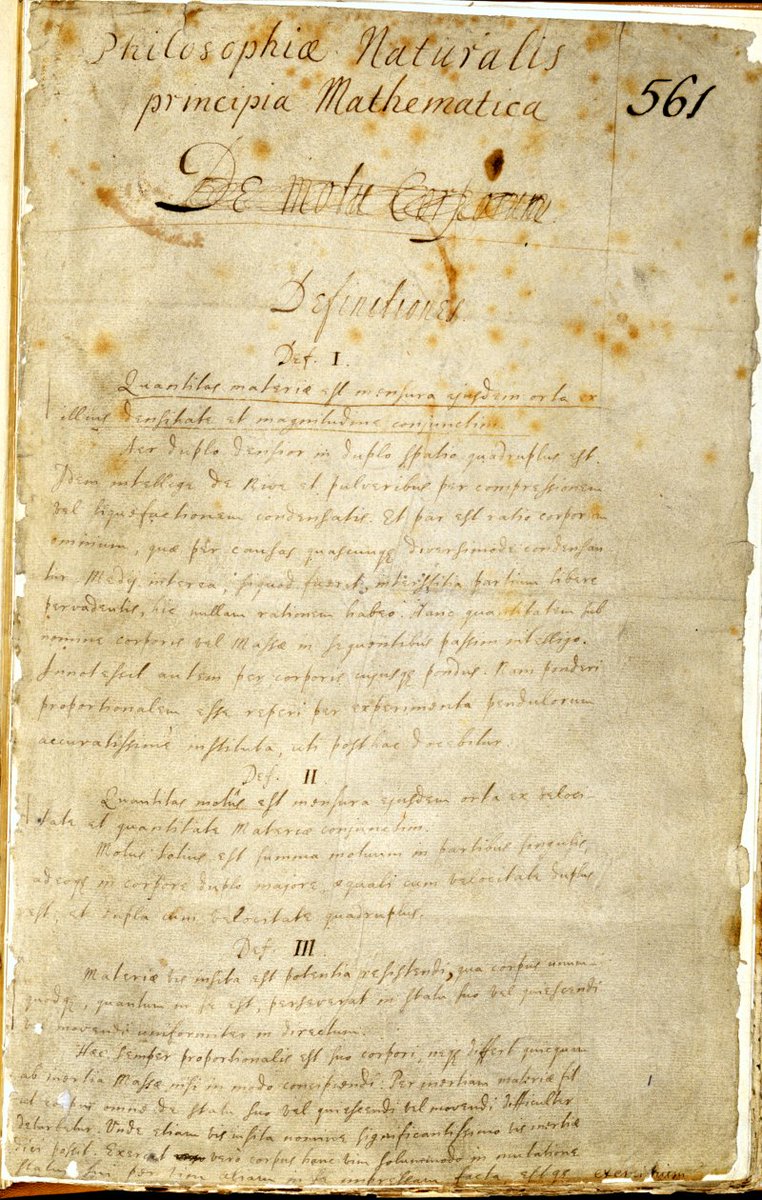 Philosophiæ Naturalis
principia Mathematica
561
De motu Corporum
Definitiones.
Def. I.
Quantitas materiæ est mensura ejusdem orta ex
illius densitate et magnitudine conjunctim.
Aer duplo densior in duplo spatio quadruplus est.
Idem intellige de Nive et pulveribus per compressionem
vel liquefactionem condensatis. Et par est ratio corporum
omnium, quæ per causas quascunqꝫ diversimode condensan
tur. Medij interea, si quod fuerit, interstitia partium libere
pervadentis, hic nullam rationem habeo. Hanc quantitatem sub
nomine corporis vel Massæ in sequentibus passim intelligo.
Innotescit autem per corporis cujusqꝫ pondus. Nam ponderi
proportionalem esse reperi per experimenta pendulorum
accuratissime instituta, uti posthac docebitur.
Def. II
Quantitas motûs est mensura ejusdem orta ex veloci-
tate et quantitate Materiæ conjunctim.
Motus totius est summa motuum in partibus singulis,
adeoqꝫ in corpore duplo majore, æquali cum velocitate duplus
est, et dupla cum velocitate quadruplus.
Def. III
Materiæ vis insita est potentia resistendi, qua corpus unum-
quodqꝫ, quantum in se est, perseverat in statu suo vel quiescendi
vel movendi uniformiter in directum.
Hæc semper proportionalis est suo corpori, neqꝫ differt quicquam
ab inertia Massæ nisi in modo concipiendi. Per inertiam materiæ fit
ut corpus omne de statu suo vel quiescendi vel movendi difficulter
deturbetur. Unde etiam vis insita nomine significantissimo vis inertiæ
dici possit. Exercet vero corpus hanc vim solummodo in mutatione
status sui per vim aliam in se impressam facta estqꝫ exercitium